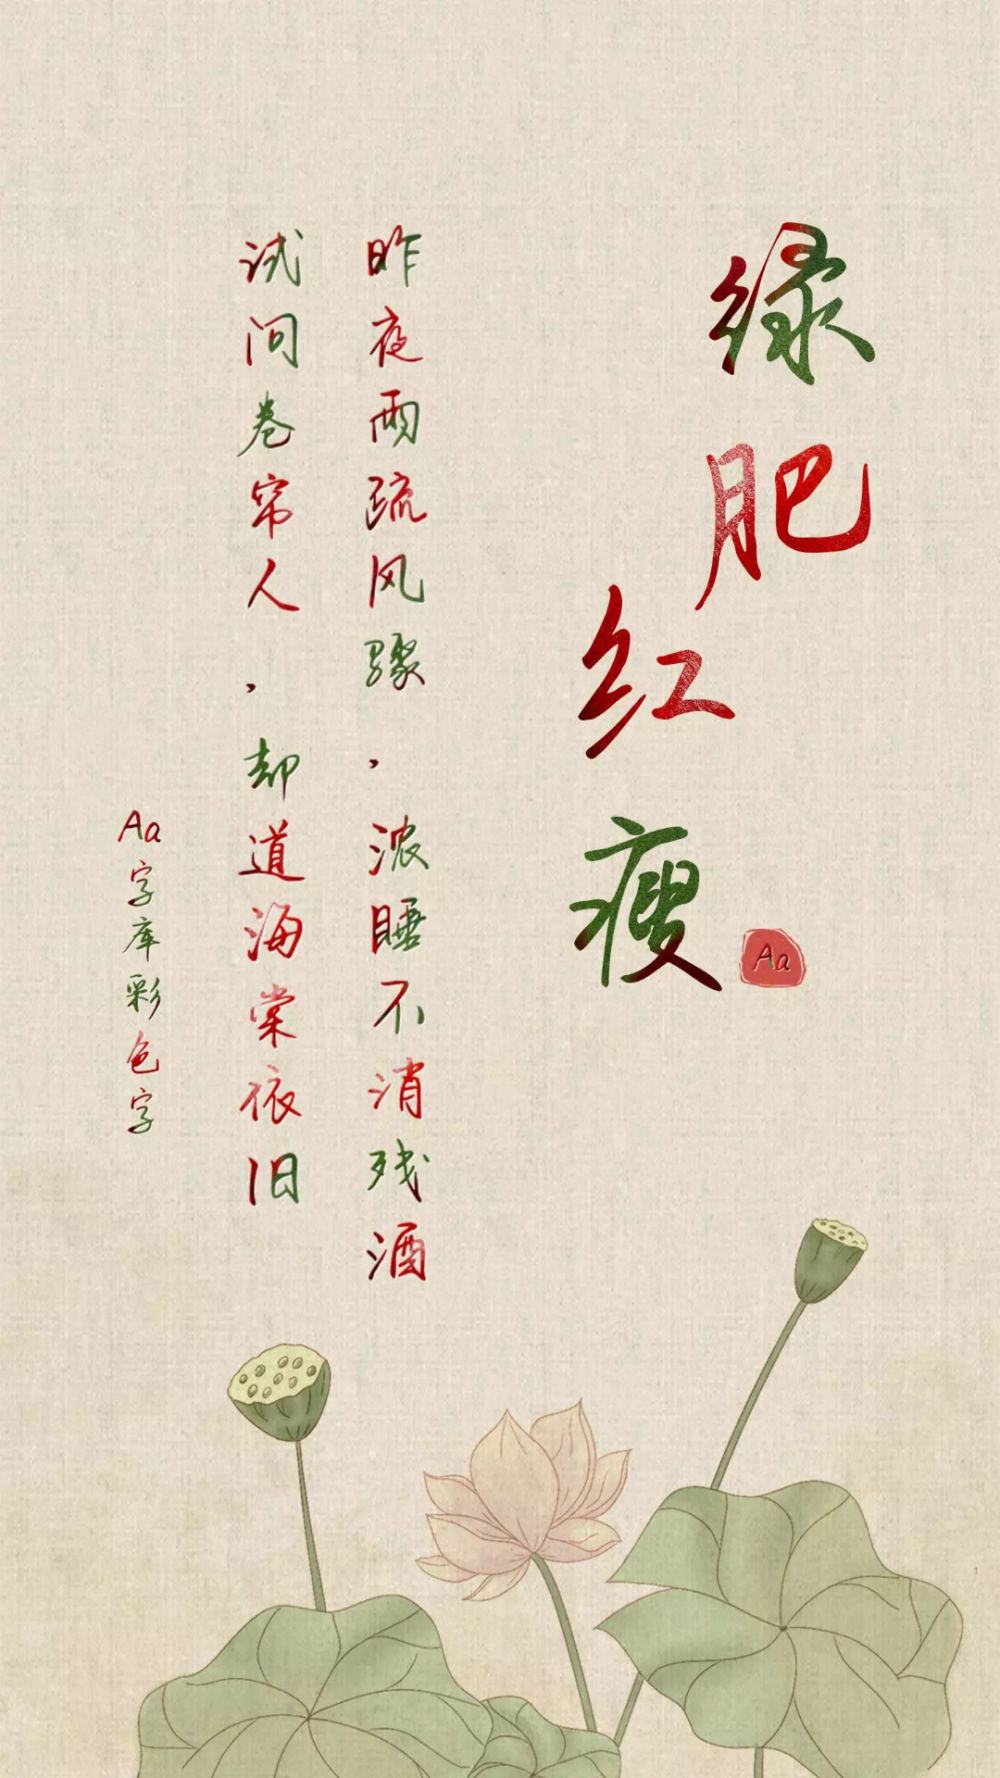 绿肥红瘦
Aa
昨夜雨疏风骤，浓睡不消残酒
试问卷帘人，却道海棠依旧
Aa字库彩色字